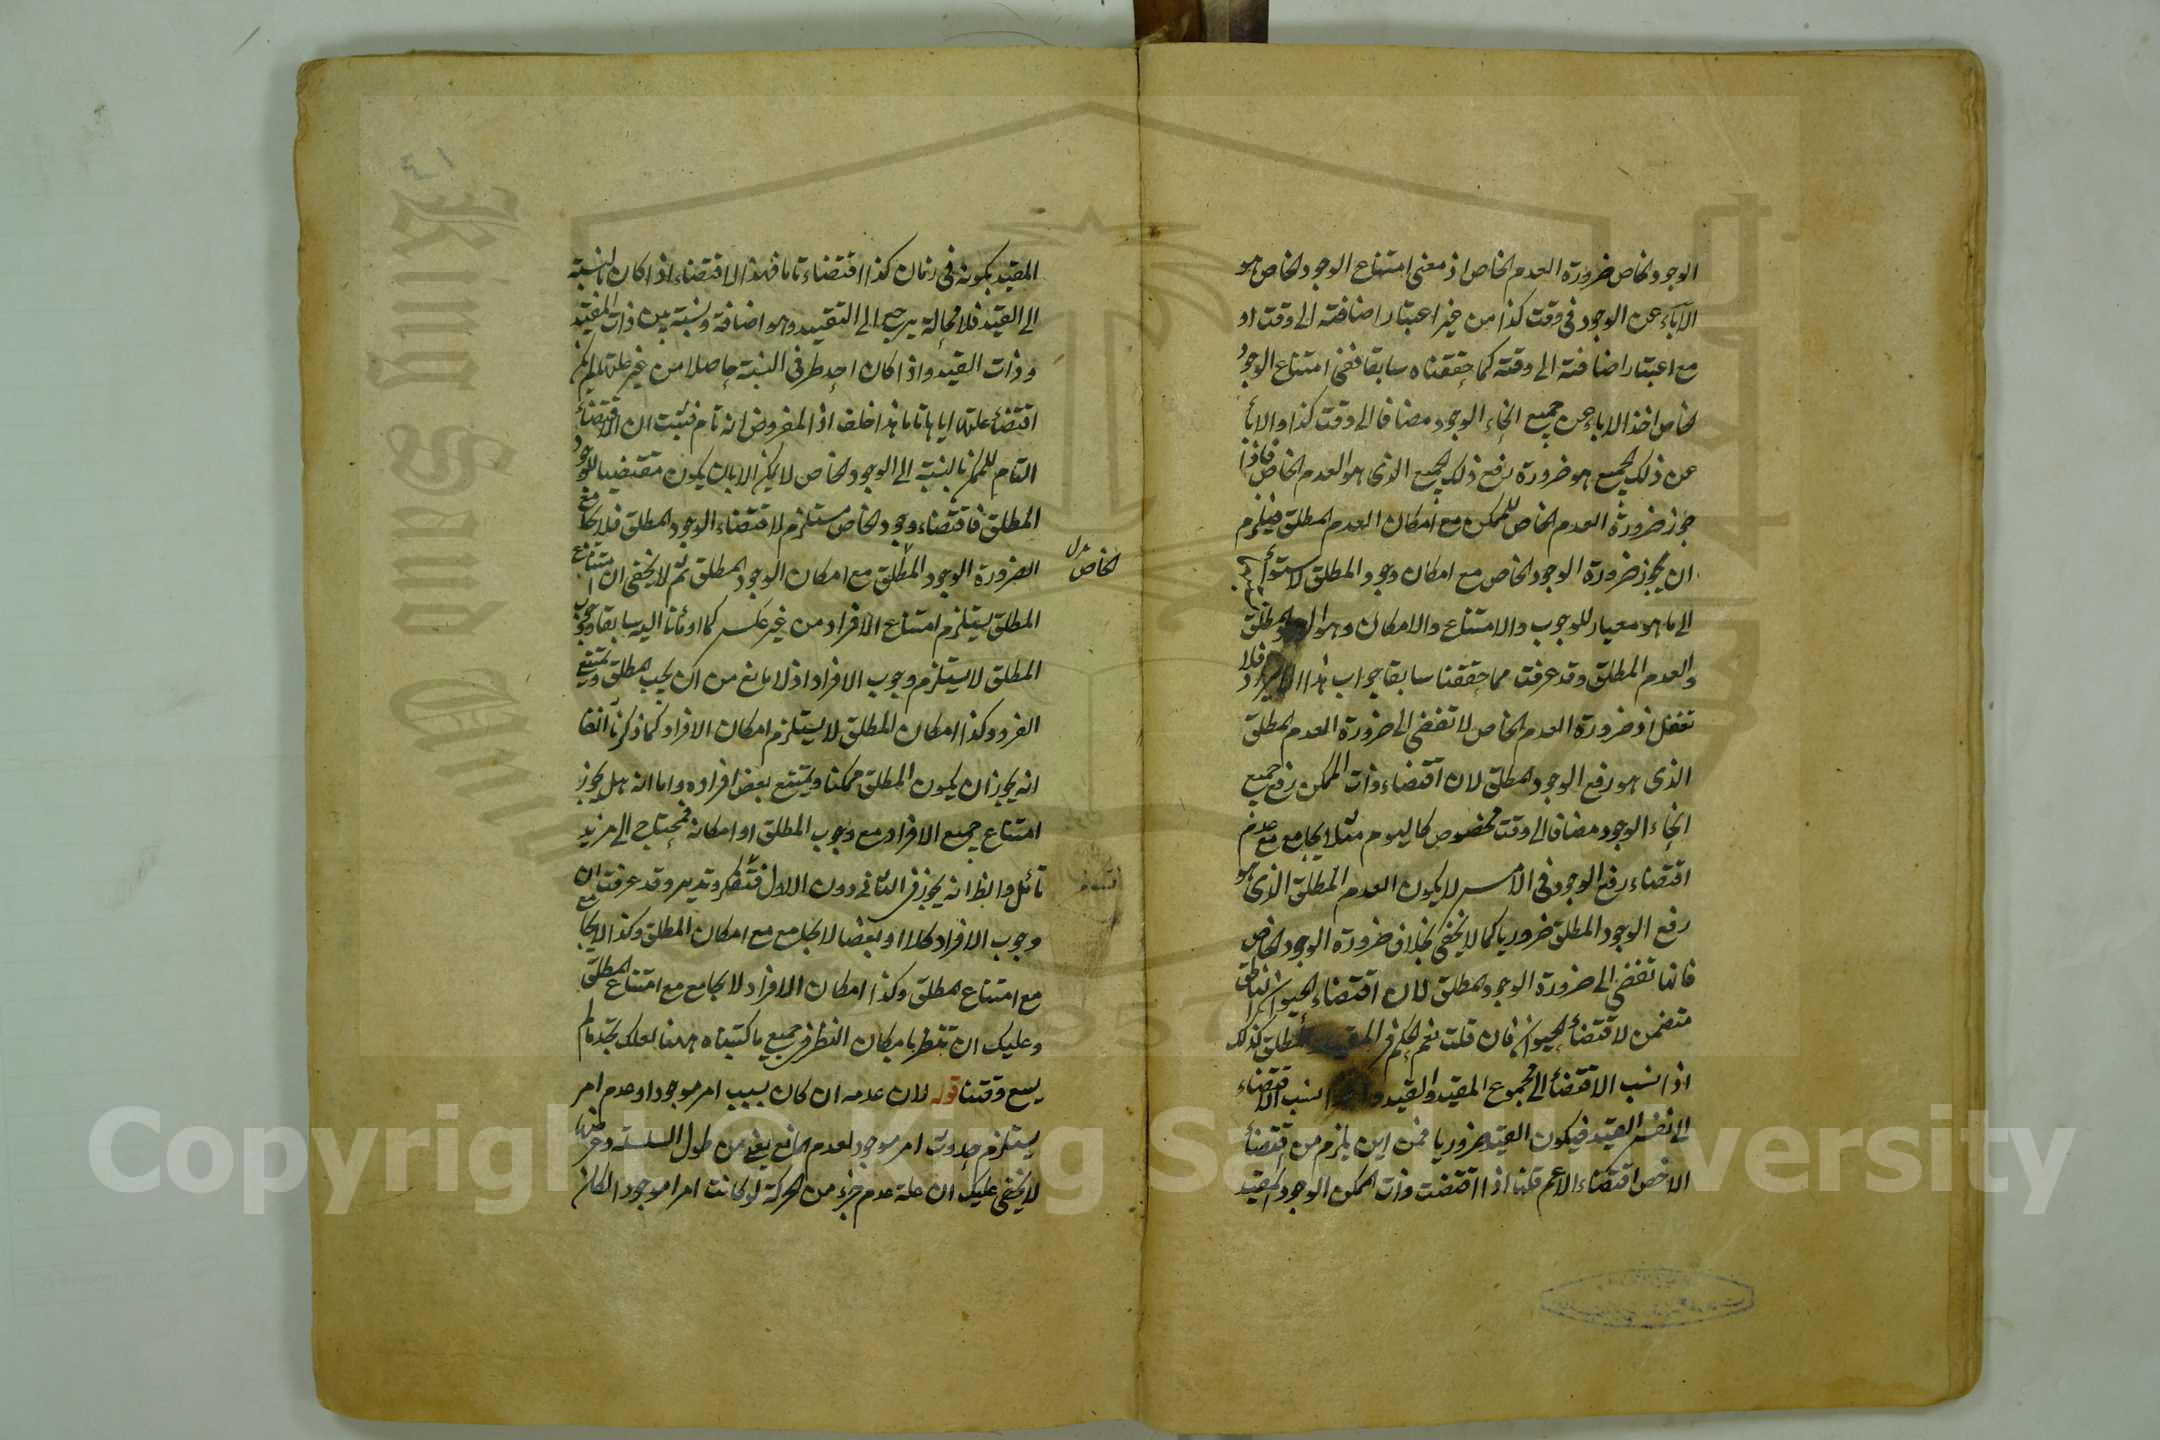 الوجود الخاص ضرورة العدم الخاص اذ معنى امتناع الوجود الخاص هو
الآباء عن الوجود فى وقت كذا من غير اعتبار اضافته الى وقت او
مع اعتبار اضافته الى وقته كما حققناه سابقا ففى امتناع الوجود
الخاص اخذ الاباء عن جميع انحاء الوجود مضافا الى وقت كذا والابأ
عن ذلك الجميع هو ضرورة رفع ذلك الجميع الذى هو العدم الخاص فاذا
جوز ضرورة العدم الخاص للممكن مع امكان العدم المطلق فيلزم
ان يجوز ضرورة الوجود الخاص مع امكان وجود المطلق لاستوأ
الى ما هو معيار للوجوب والامتناع والامكان وهو المطلق
والعدم المطلق وقد عرفت مما حققنا سابقا جواب هذا الايراد فلا
تغفل اذ ضرورة العدم الخاص لا تفضى الى ضرورة العدم المطلق
الذى هو رفع الوجود المطلق لان اقتضاء ذات الممكن رفع جميع
انحاء الوجود مضافا الى وقت مخصوص كاليوم مثلا يجامع مع عدم
اقتضاء رفع الوجود فى الامس لا يكون العدم المطلق الذى هو
رفع الوجود المطلق ضروريا كما لا يخفى بخلاف ضرورة الوجود الخاص
فانها تفضى الى ضرورة الوجود المطلق لان اقتضاء الحيوان الناطق
متضمن لاقتضاء الحيوان فان قلت نعم الحكم فى المطلق كذلك
اذا نسب الاقتضاء الى مجموع المقيد والقيد نسب الاقتضاء
الى نفس القيد فيكون القيد ضروريا فمن اين يلزم من اقتضأ
الاخص اقتضاء الاعم قلنا اذا اقتضت ذات الممكن الوجود المقيد
المقيد بكونه فى زمان كذا اقتضاء تاما فهذا الاقتضاء اذا كان بالنسبة
الى القيد فلا محالة يرجع الى التقييد وهو اضافة ونسبة بين ذات المقيد
وذات القيد واذا كان احد طرفى النسبة حاصلا من غير علته لم يكن
اقتضأ علته اياها تاما هذا خلف اذ المفروض انه تام فثبت ان الاقتضأ
التام للممكن بالنسبة الى الوجود الخاص لا يمكن الا بان يكون مقتضيا للوجود
المطلق فاقتضاء وجود الخاص مستلزم لاقتضاء الوجود المطلق فلا يجامع
الضرورة الوجود المطلق مع امكان الوجود المطلق ثم لا يخفى ان امتناع
الخاص
المطلق يستلزم امتناع الافراد من غير عكس كما اومأنا اليه سابقا ووجوب
المطلق لا يستلزم وجوب الافراد اذ لا مانع من ان يجب المطلق ويمتنع
الفرد وكذا امكان المطلق لا يستلزم امكان الافراد كما ذكرنا آنفا
انه يجوز ان يكون المطلق ممكنا ويمتنع بعض افراده واما انه هل يجوز
امتناع جميع الافراد مع وجوب المطلق او امكانه فمحتاج الى مزيد
تأمل والظ انه يجوز فى الثانى دون الاول فتفكر وتدبر وقد عرفت ان
وجوب الافراد كلا او بعضا لا يجامع مع امكان المطلق وكذا لا يجامع
مع امتناع المطلق وكذا امكان الافراد لا يجامع مع امتناع المطلق
وعليك ان تنظر بامكان النظر فى جميع ما كتبناه ههنا لعلك تجد ما لم
يسع وقتنا قوله لان عدمه ان كان بسبب امر موجود او عدم امر
يستلزم حدوث امر موجود لعدم المانع يغنى من طول السلسلة وعرضها
لا يخفى عليك ان علة عدم جزء من الحركة لو كانت امرا موجودا لكان
٤١
King Saud University
Copyright © King Saud University